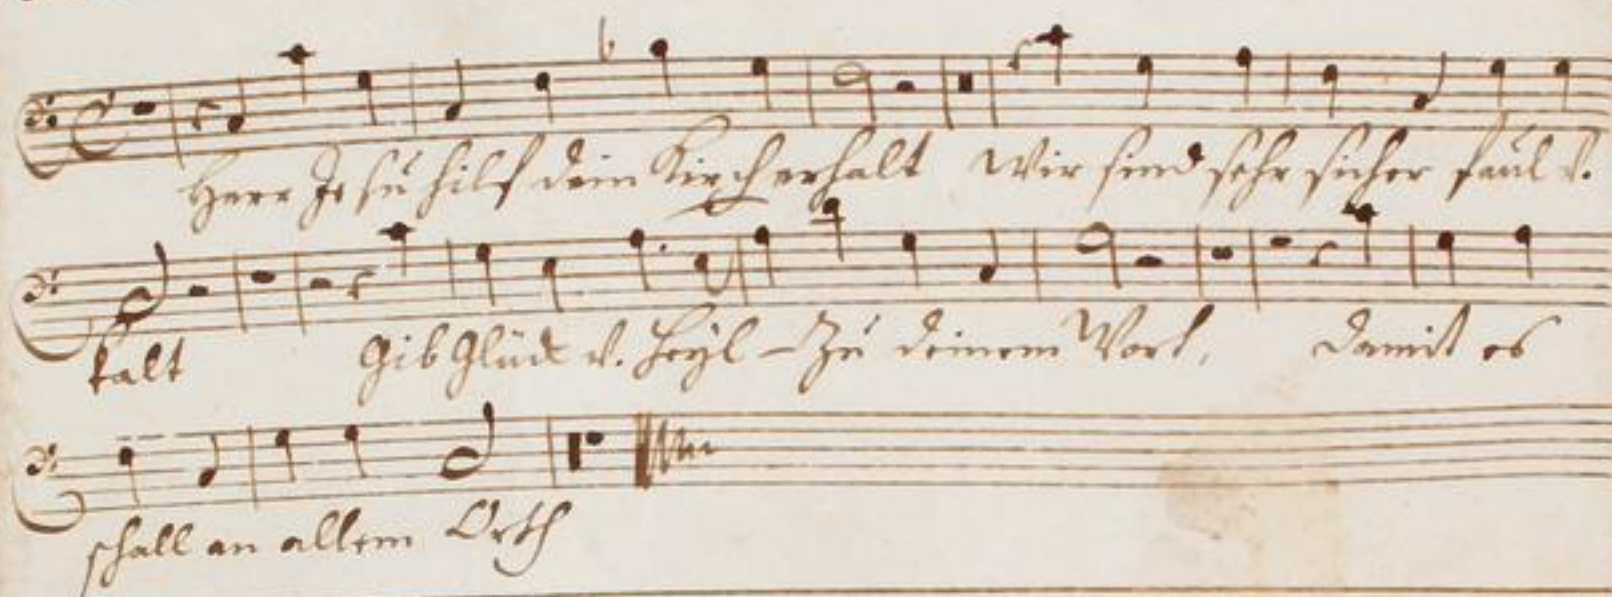 Herr Jesu hilf dein Kirch erhalt Wir sind sehr sicher faul v.
kalt Gib Glück v. Heyl - Zu deinem Wort, damit es
schall an allem Orth